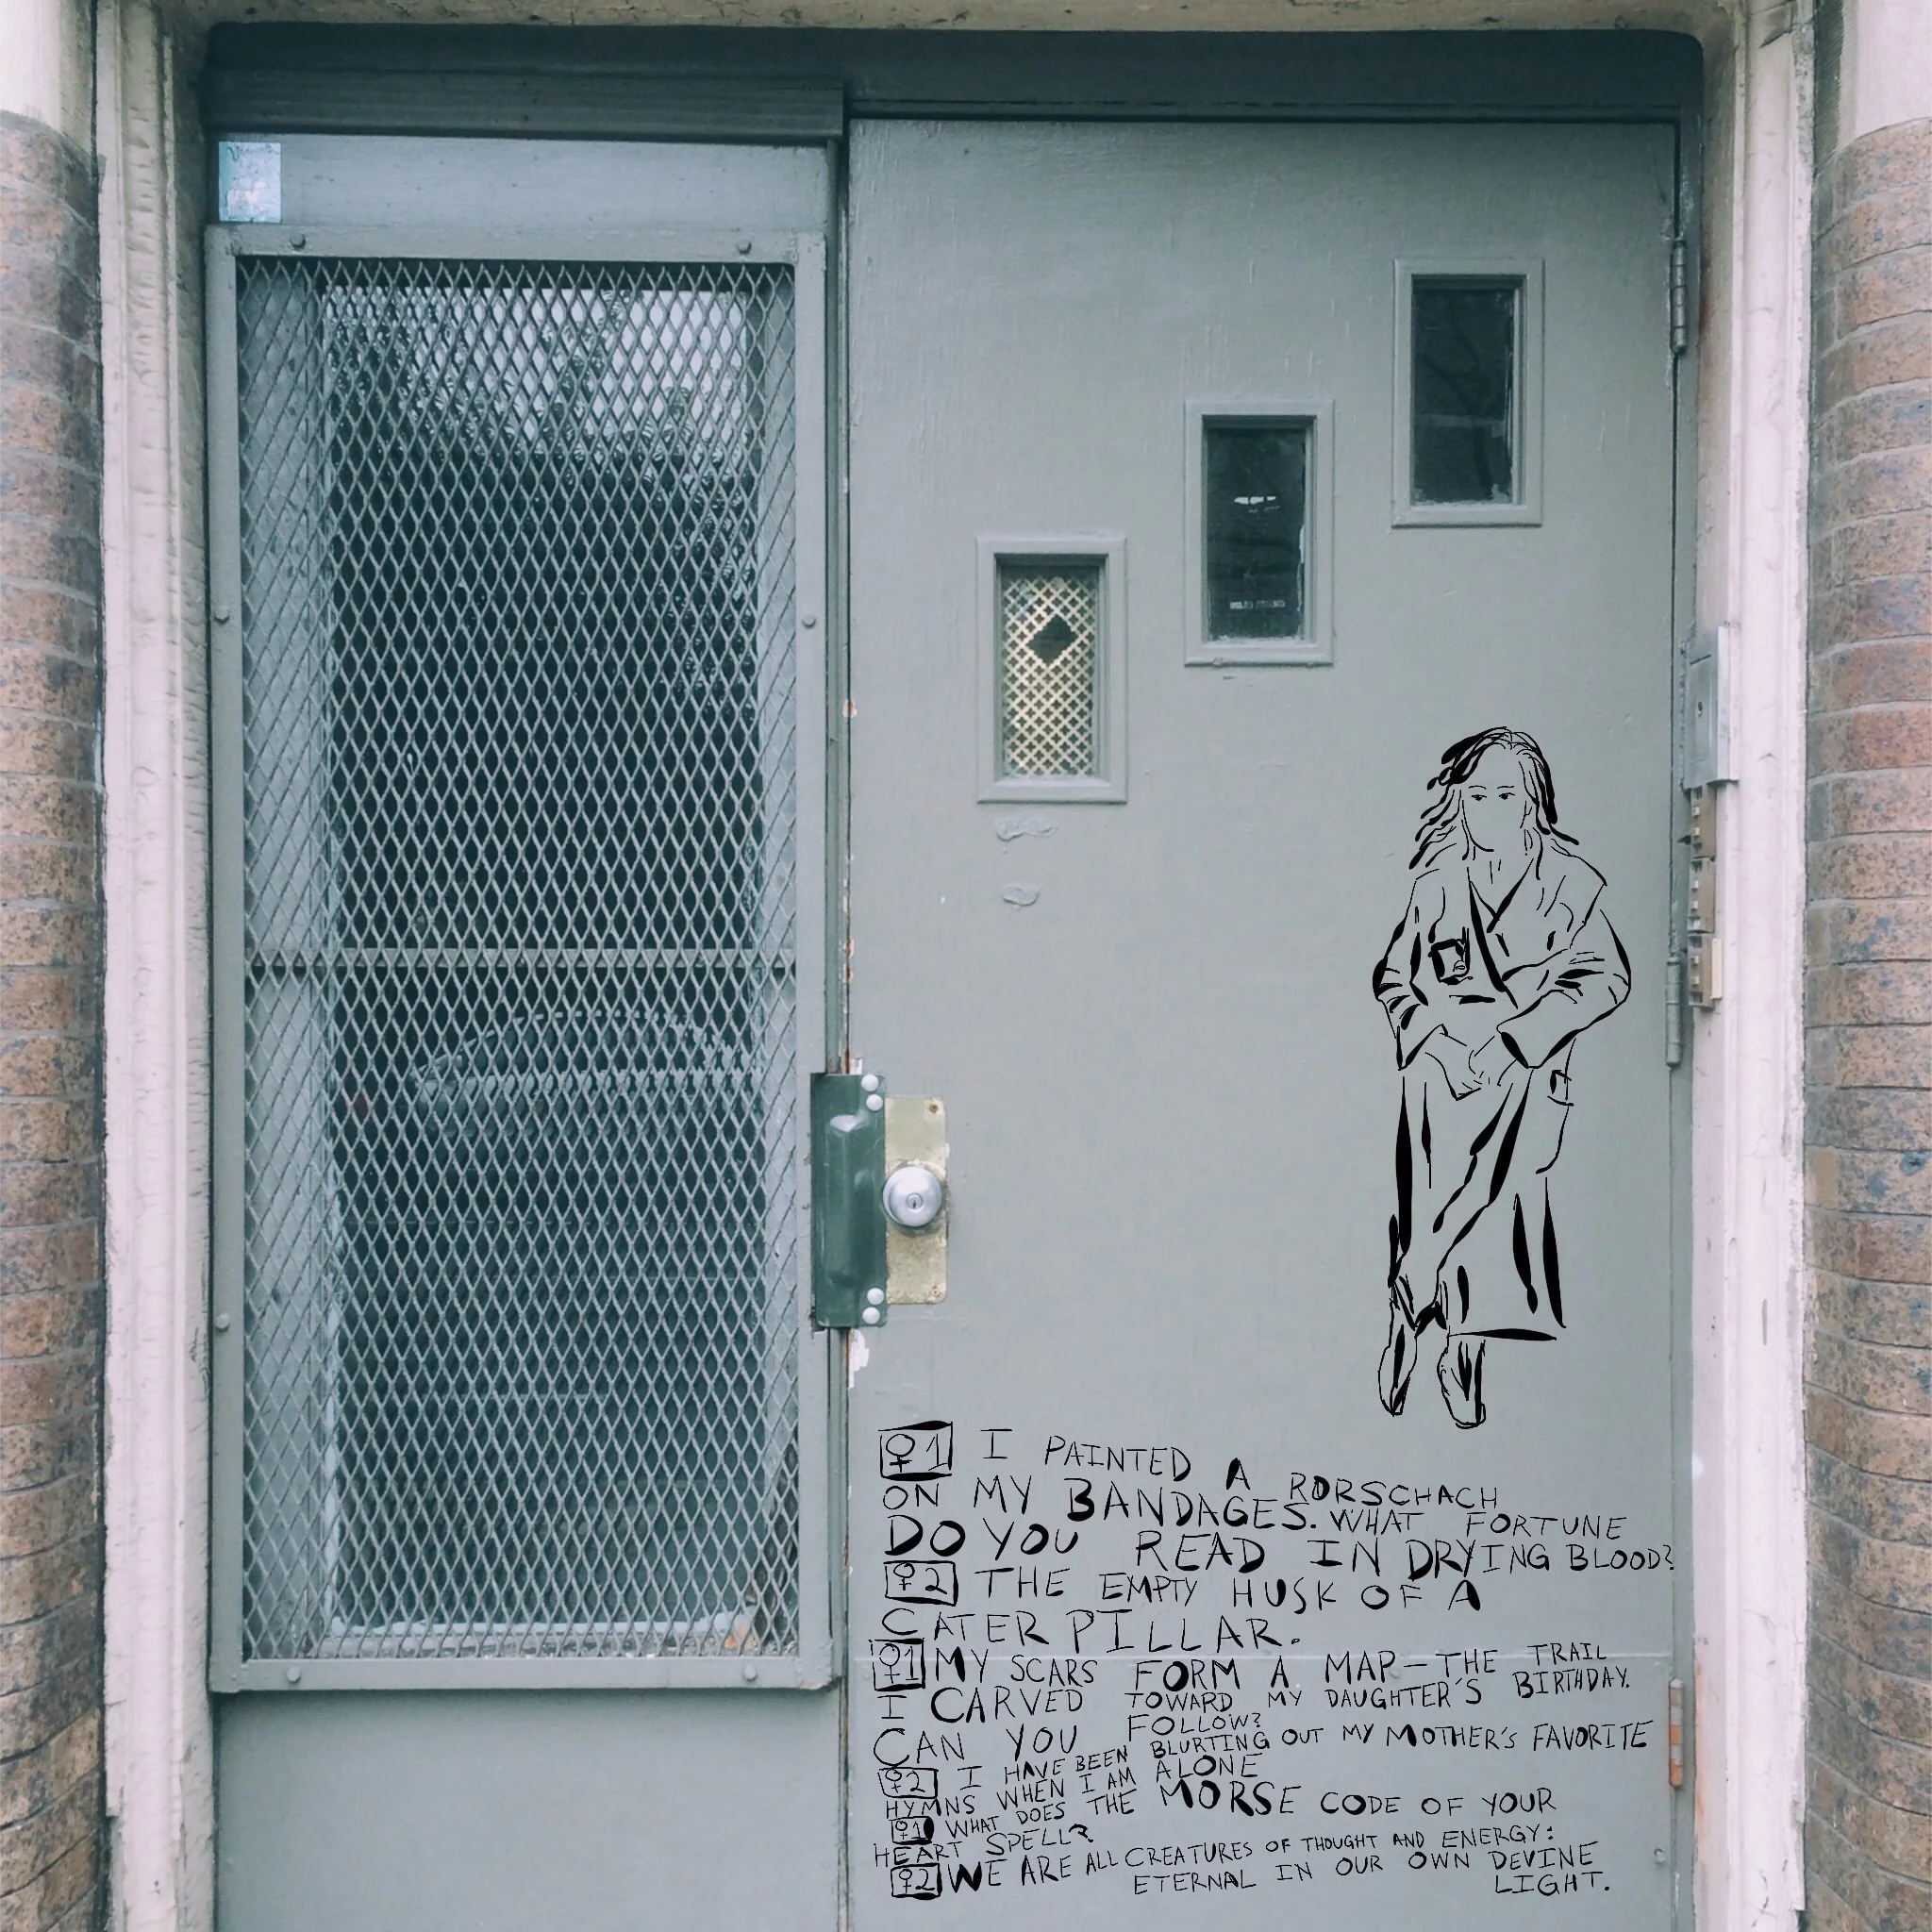 ♀1 I PAINTED A RORSCHACH
ON MY BANDAGES. WHAT FORTUNE
DO YOU READ IN DRYING BLOOD?
♀2 THE EMPTY HUSK OF A
CATERPILLAR.
♀1 MY SCARS FORM A MAP—THE TRAIL
I CARVED TOWARD MY DAUGHTER'S BIRTHDAY.
CAN YOU FOLLOW?
♀2 I HAVE BEEN BLURTING OUT MY MOTHER'S FAVORITE
HYMNS WHEN I AM ALONE
♀1 WHAT DOES THE MORSE CODE OF YOUR
HEART SPELL?
♀2 WE ARE ALL CREATURES OF THOUGHT AND ENERGY:
ETERNAL IN OUR OWN DEVINE
LIGHT.